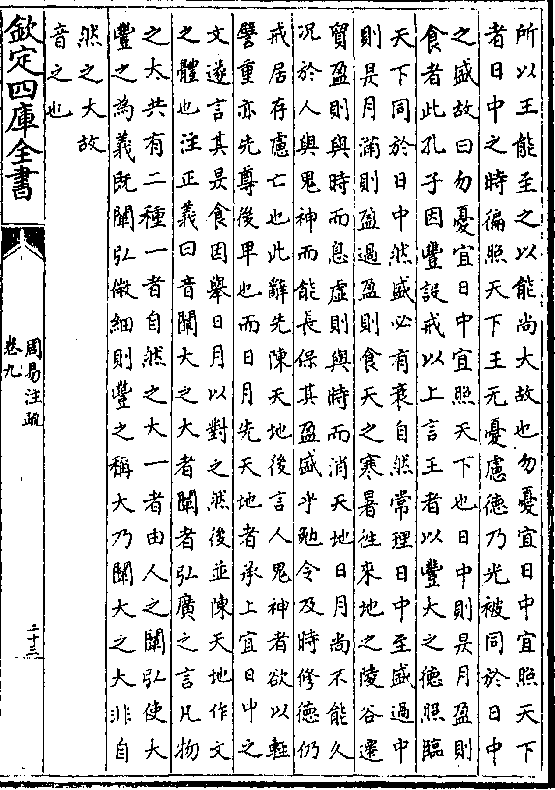 所以王能至之以能尚大故也勿憂宜日中宜照天下
者日中之時徧照天下王无憂慮德乃光被同於日中
之盛故曰勿憂宜日中宜照天下也日中則昃月盈則
食者此孔子因豐設戒以上言王者以豐大之德照臨
天下同於日中然盛必有衰自然常理日中至盛過中
則昃月滿則盈過盈則食天之寒暑往來地之陵谷遷
貿盈則與時而息虛則與時而消天地日月尚不能久
況於人與鬼神而能長保其盈盛乎勉令及時修德仍
戒居存慮亡也此辭先陳天地後言人鬼神者欲以輕
譬重亦先尊後卑也而日月先天地者承上宜日中之
文遂言其昃食因舉日月以對之然後並陳天地作文
之體也注正義曰音闡大之大者闡者弘廣之言凡物
之大共有二種一者自然之大一者由人之闡弘使大
豐之為義既闡弘微細則豐之稱大乃闡大之大非自
然之大故
音之也
欽定四庫全書
周易注疏
卷九
二十三